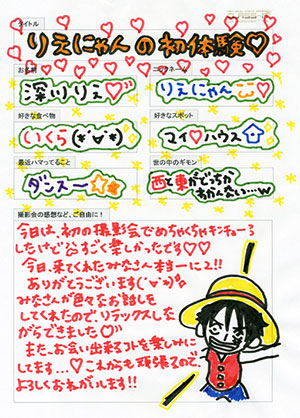 タイトル
りえにゃんの初体験♡
お名前
ニックネーム
深川りえ♡
りえにゃん
好きな食べ物
好きなスポット
いくら(*´∀`*)
マイ♡ハウス
最近ハマってること
世の中のギモン
ダンス〜☆☆
西と東がどっちか
わかんない…w
撮影会の感想など、ご自由に!
今日は、初の撮影会でめちゃくちゃキンチョーう
したけどすごく楽しかったです♡♡
今日、来てくれたみなさん本当ーに2!!
ありがとうございます(´∀`)
みなさんが色々なお話しを
してくれたので、リラックスしな
がらできました♡
また、お会い出来るコトを楽しみに
してます…♡これからも頑張るので、
よろしくおねがいします!!